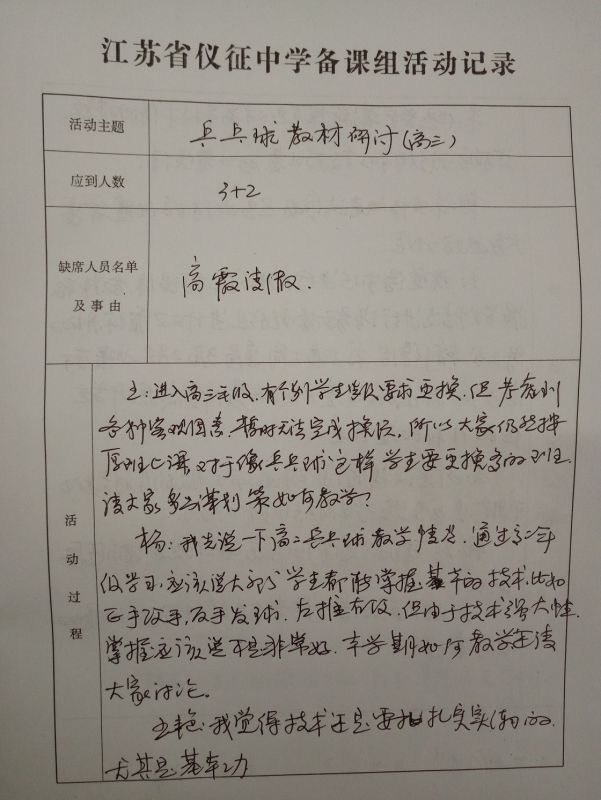 江苏省仪征中学备课组活动记录
活动主题 乒乓球教材研讨(高三)
应到人数 3+2
缺席人员名单
及事由 高霞请假.
活动过程
王:进入高三年级,有个别学生提出要求更换,但考虑到
各种客观因素,暂时无法完成换位,所以大家仍然按
原班上课,对于像乒乓球这样学生要更换高的班.
请大家多谋划策如何教学?
杨:我先说一下高二乒乓球教学情况.通过高二年
级学习,应该说大部分学生都能掌握基本的技术,比如
正手攻球,反手发球.左推右攻,但由于技术
掌握应该说不是非常好.本学期如何教学还请
大家讨论。
王艳:我觉得技术还是要扎扎实实的
尤其是基本功